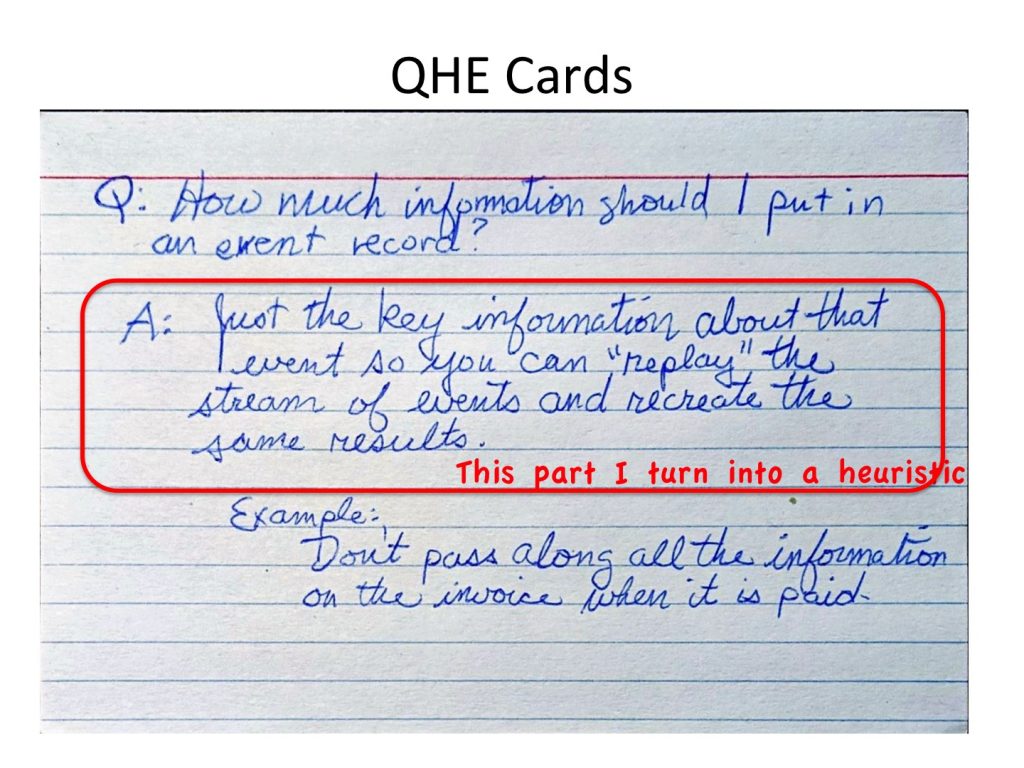 QHE Cards
Q: How much information should I put in
an event record?
A: Just the key information about that
event so you can "replay" the
stream of events and recreate the
same results.
This part I turn into a heuristic
Example:
Don't pass along all the information
on the invoice when it is paid.